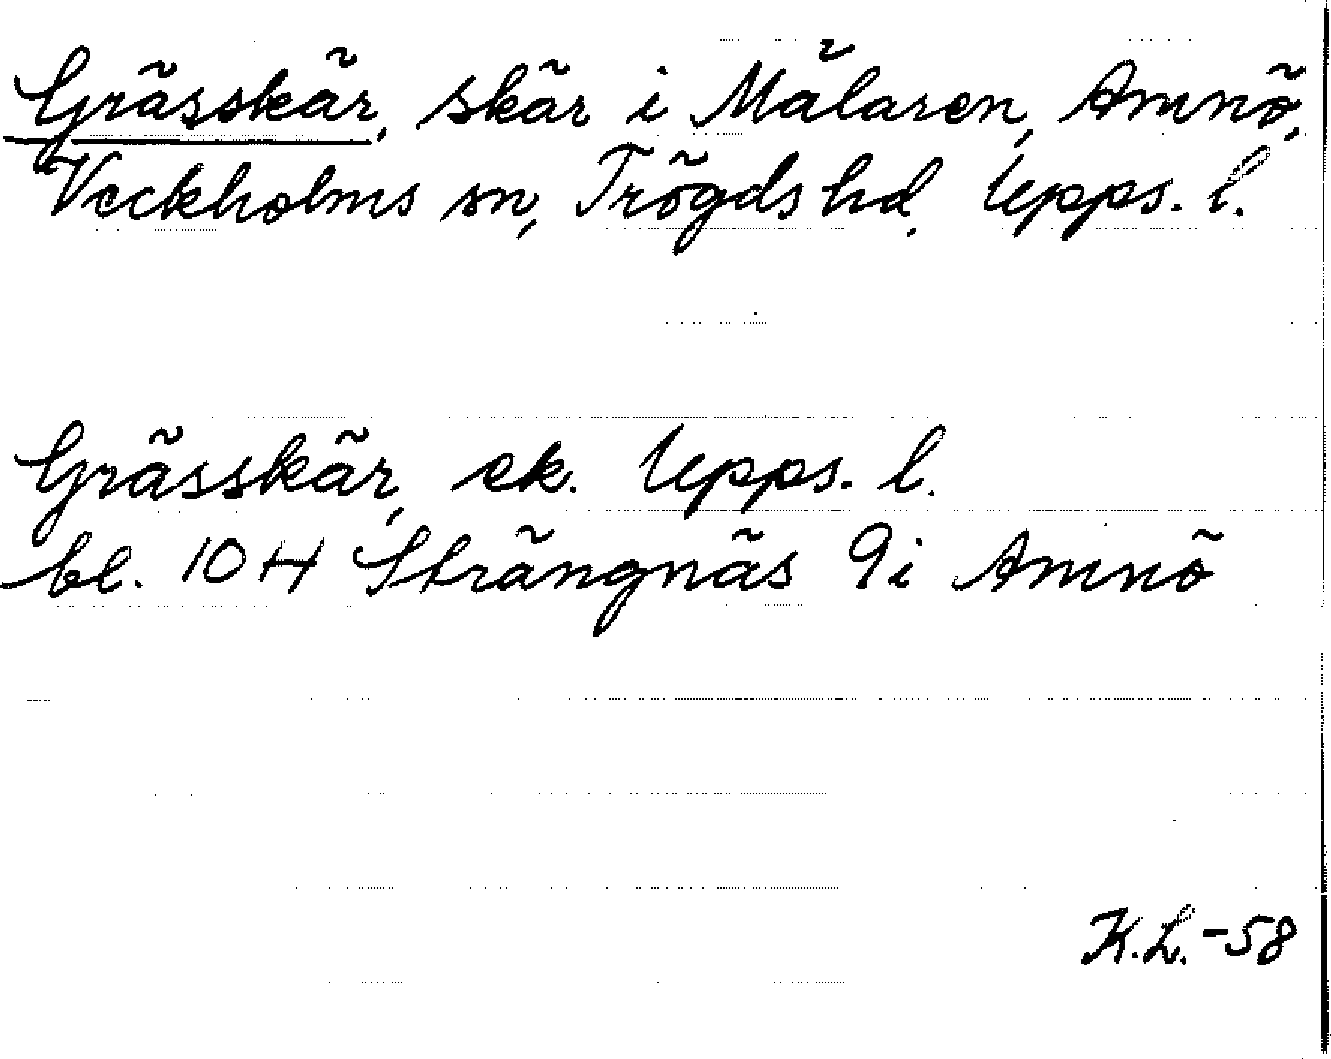 Grässkär, skär i Mälaren, Amnö,
Veckholms sn, Trögds hd, Upps. l.
Grässkär, ek. Upps. l.
bl. 10 H Strängnäs 9i Amnö
K.L.-58